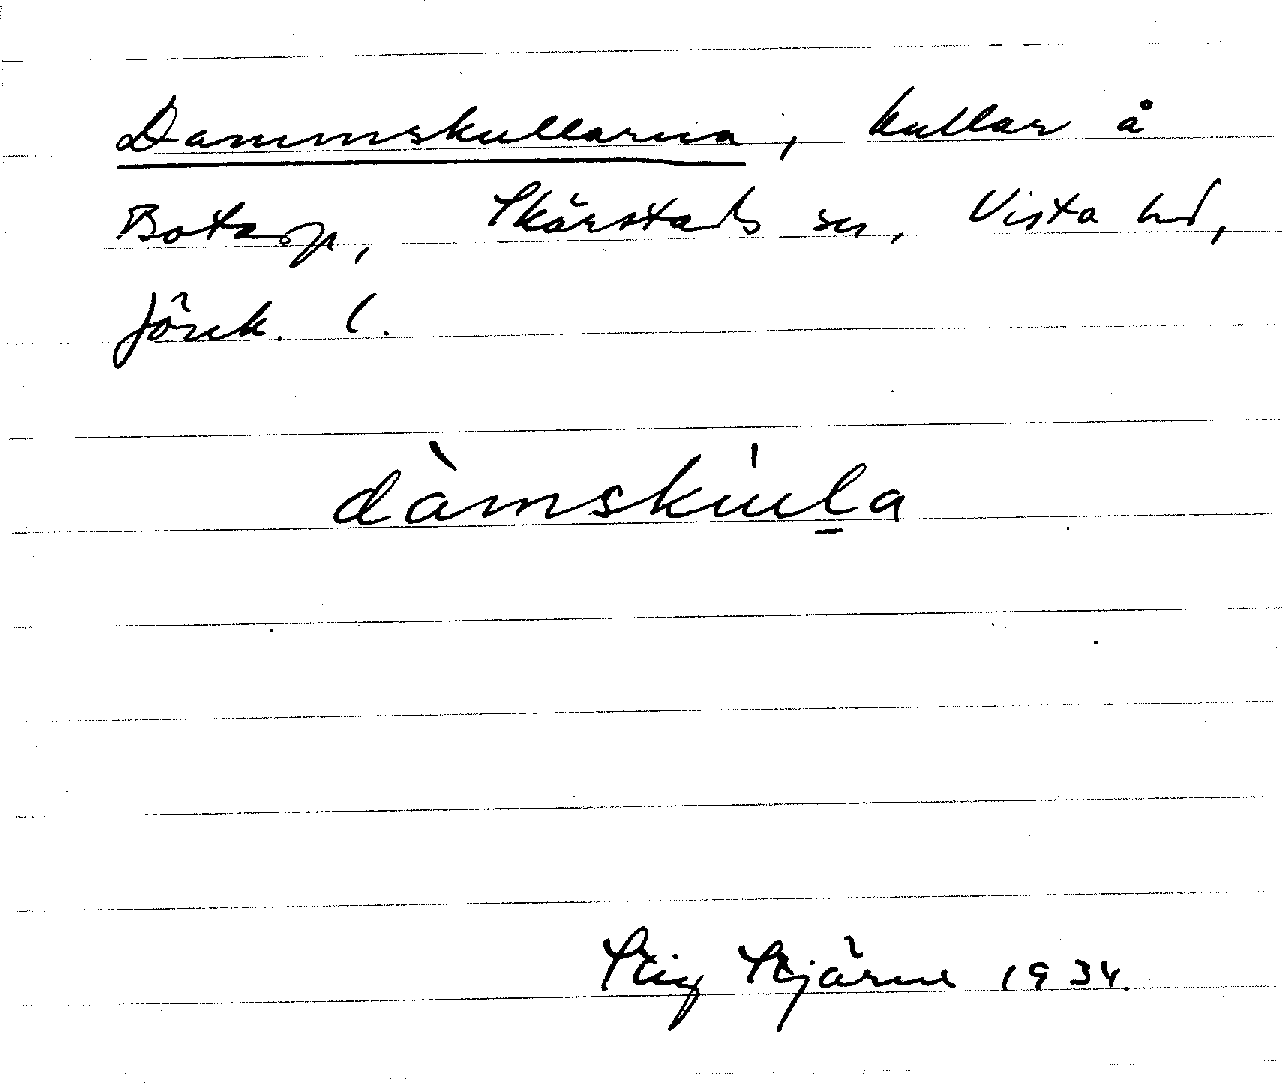 Dammskullarna, kullar å
Botarp, Skärstads sn, Vista hd,
Jönk. l.
dàmskúḻa
Stig Stjärne 1934.